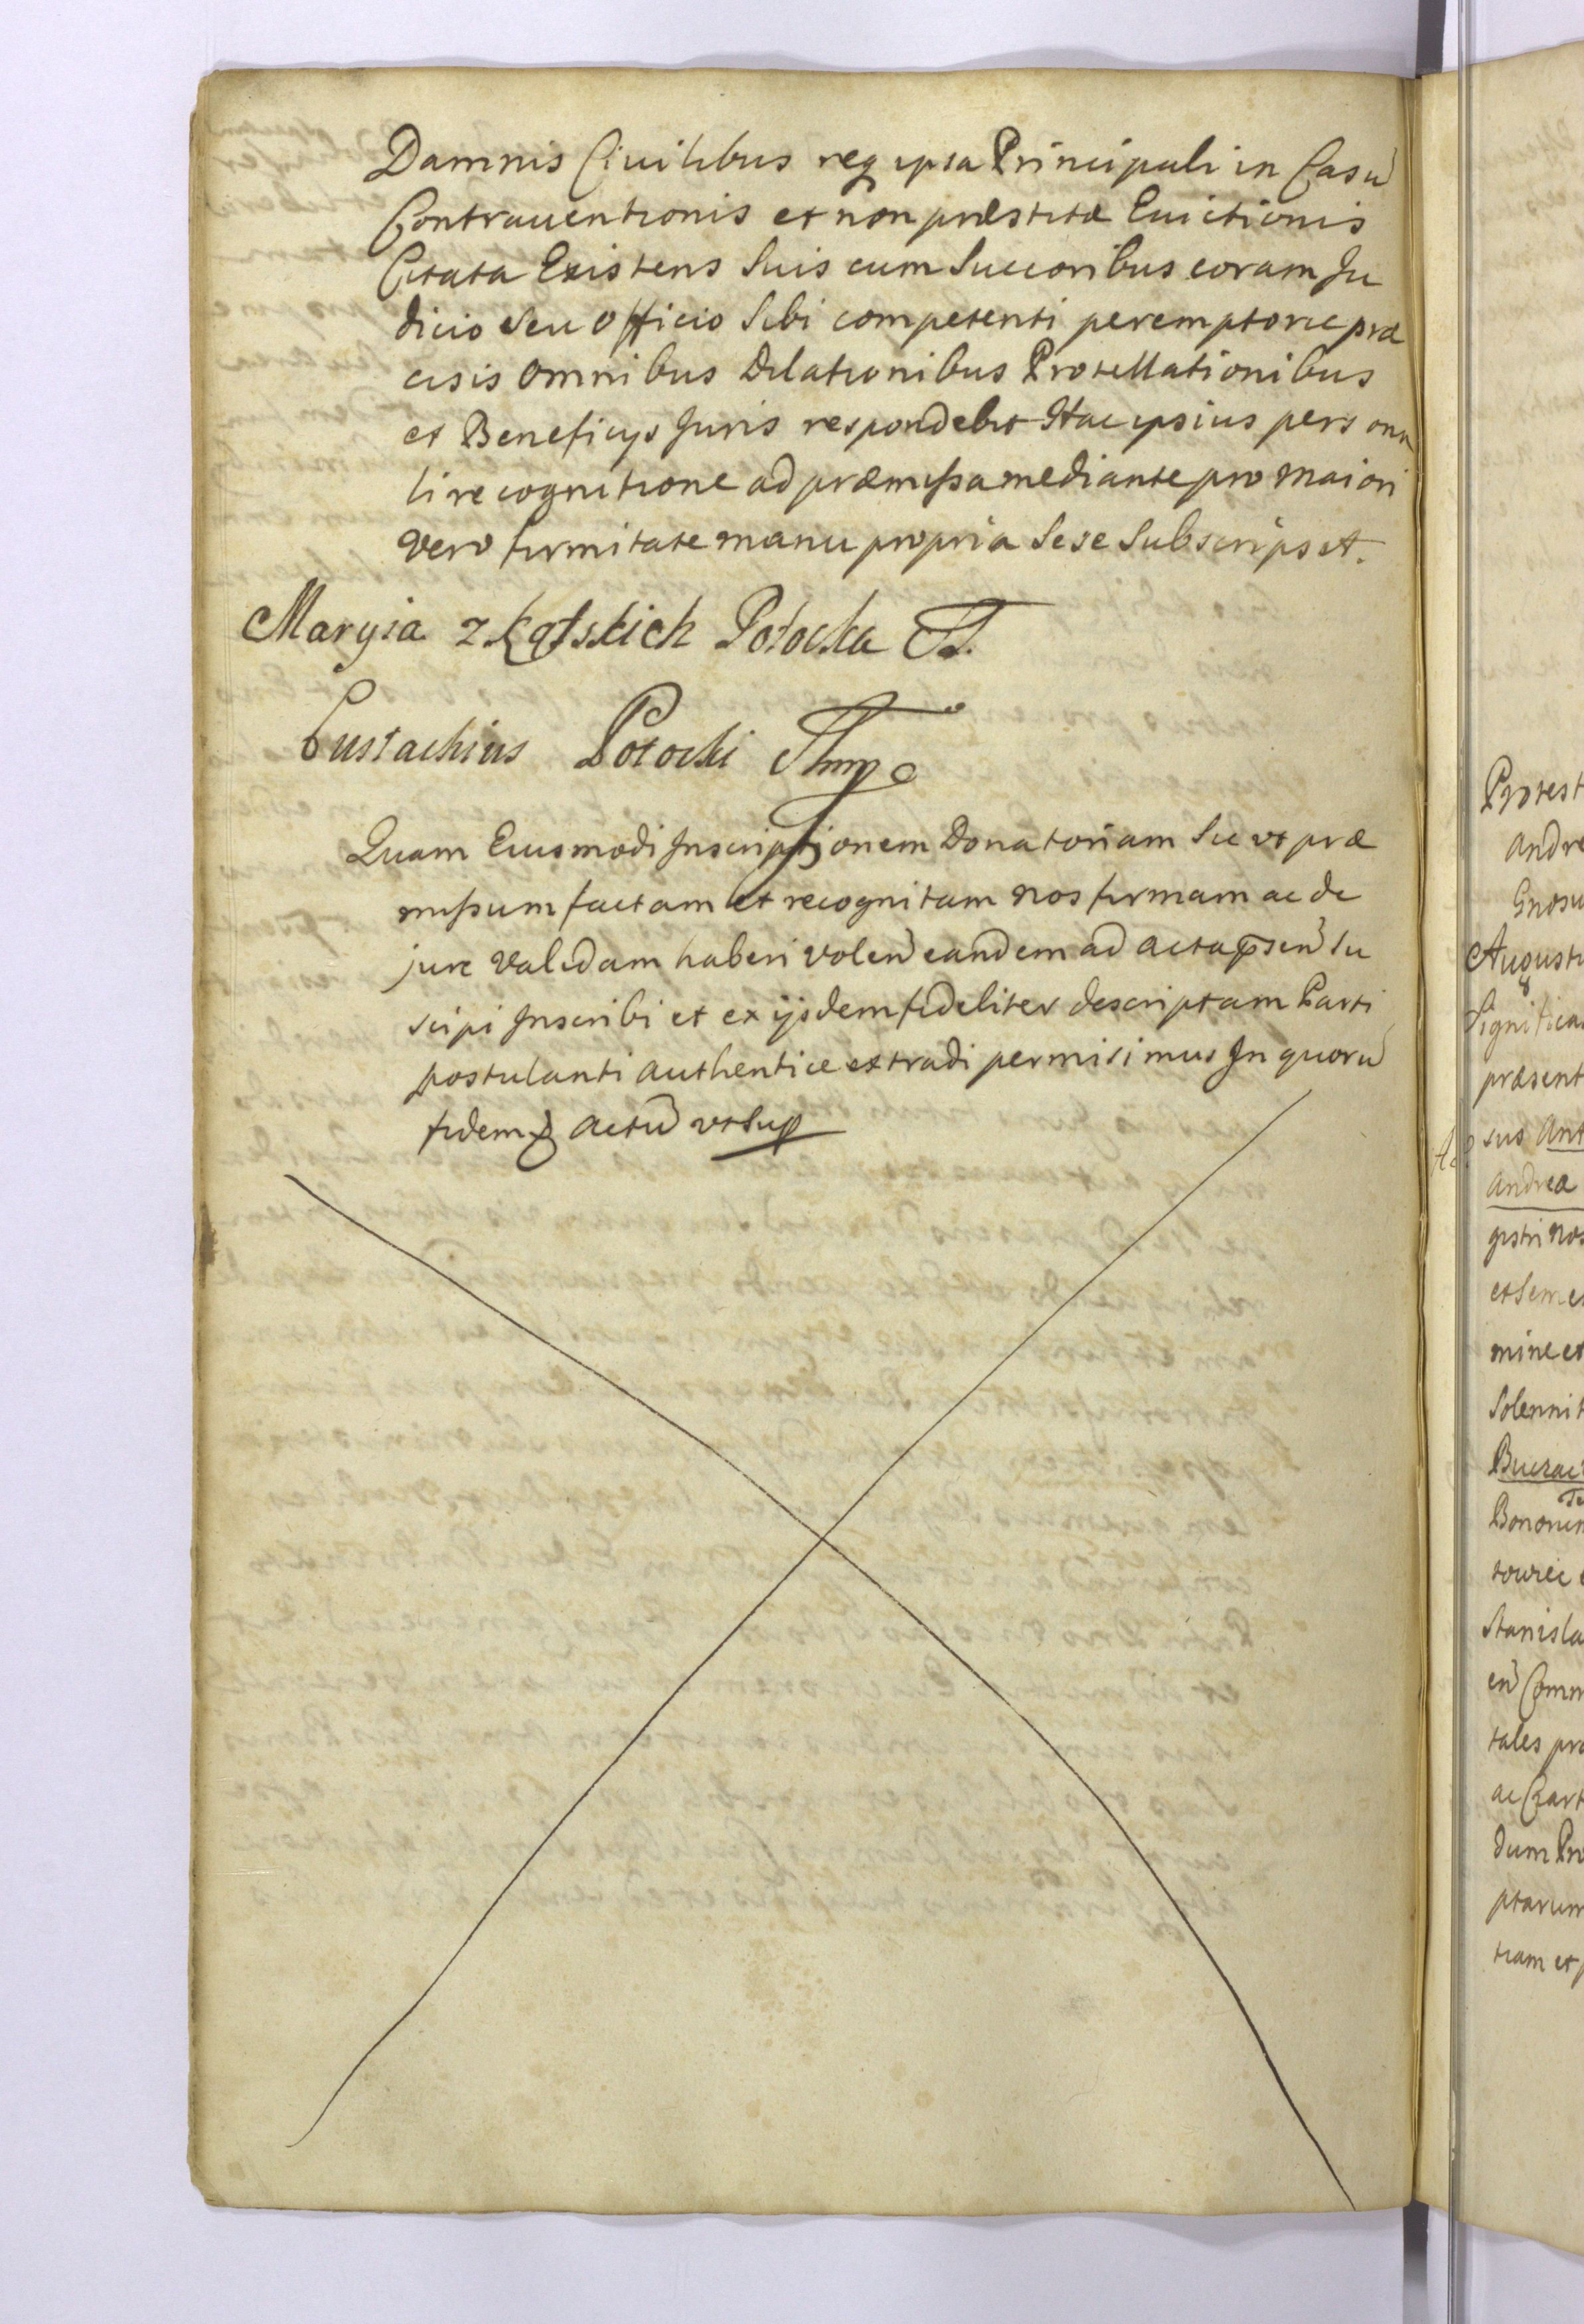 Damnis Civilibus req ipsa Principali in Casu
Contrauentionis et non præstitæ Euictionis
Citata Existens Suis cum Succoribus coram Ju
dicio Seu Officio Sibi competenti peremptorie præ
cisis Omnibus Dilationibus Protellationibus
et Beneficys Juris respondebit Hac ipsius persona
li recognitione ad præmissa mediante pro maiori
vero firmitate manu propria Sese Subscripsit.
Maryia z kątskich Potocka
Eustachius Potocki
Quam Eiusmodi Inscriptionem Donatoriam Sic vt præ
missum factam et recognitam nos firmam ac de
jure Validam haberi volen eandem ad acta psen Su
scipi Inscribi et ex ijsdem fideliter descriptam Parti
postulanti authentice extradi permisimus In quoru
fidem actu vt Sup
Protest
Andre
Gnosu
Augustu
Significa
præsent
sus Ant
Andrea
gistri nos
et Seme
mine et
Solennit
Buczac
Bononien
towiec
Stanisla
en Comm
tales pro
ac Chart
dum Pro
ptarum
tiam et